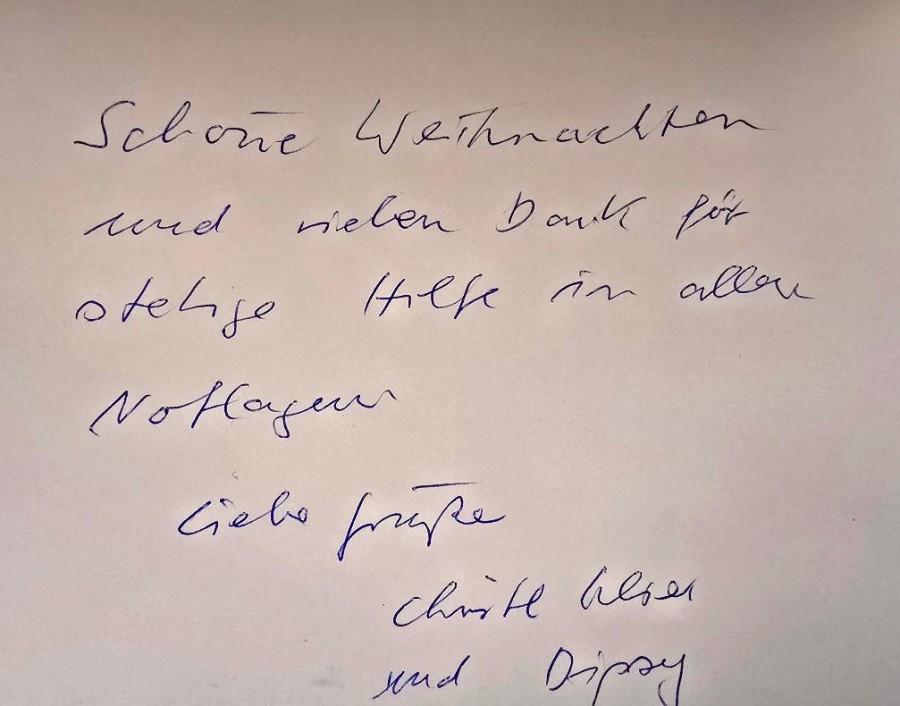 Schöne Weihnachten
und vielen Dank für
stetige Hilfe in allen
Notlagen
Liebe Grüße
Christl
und Dipsy